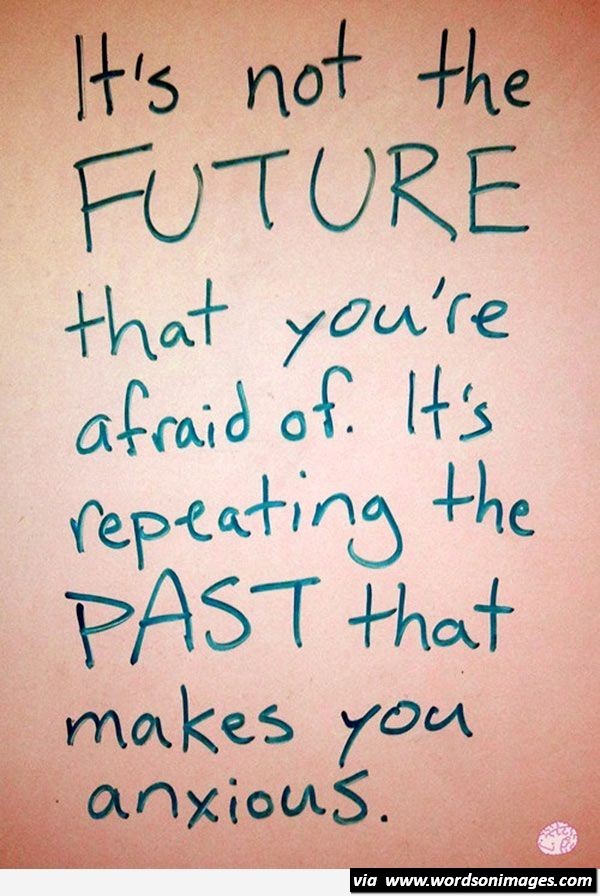 It's not the
FUTURE
that you're
afraid of. It's
repeating the
PAST that
makes you
anxious.
via www.wordsonimages.com